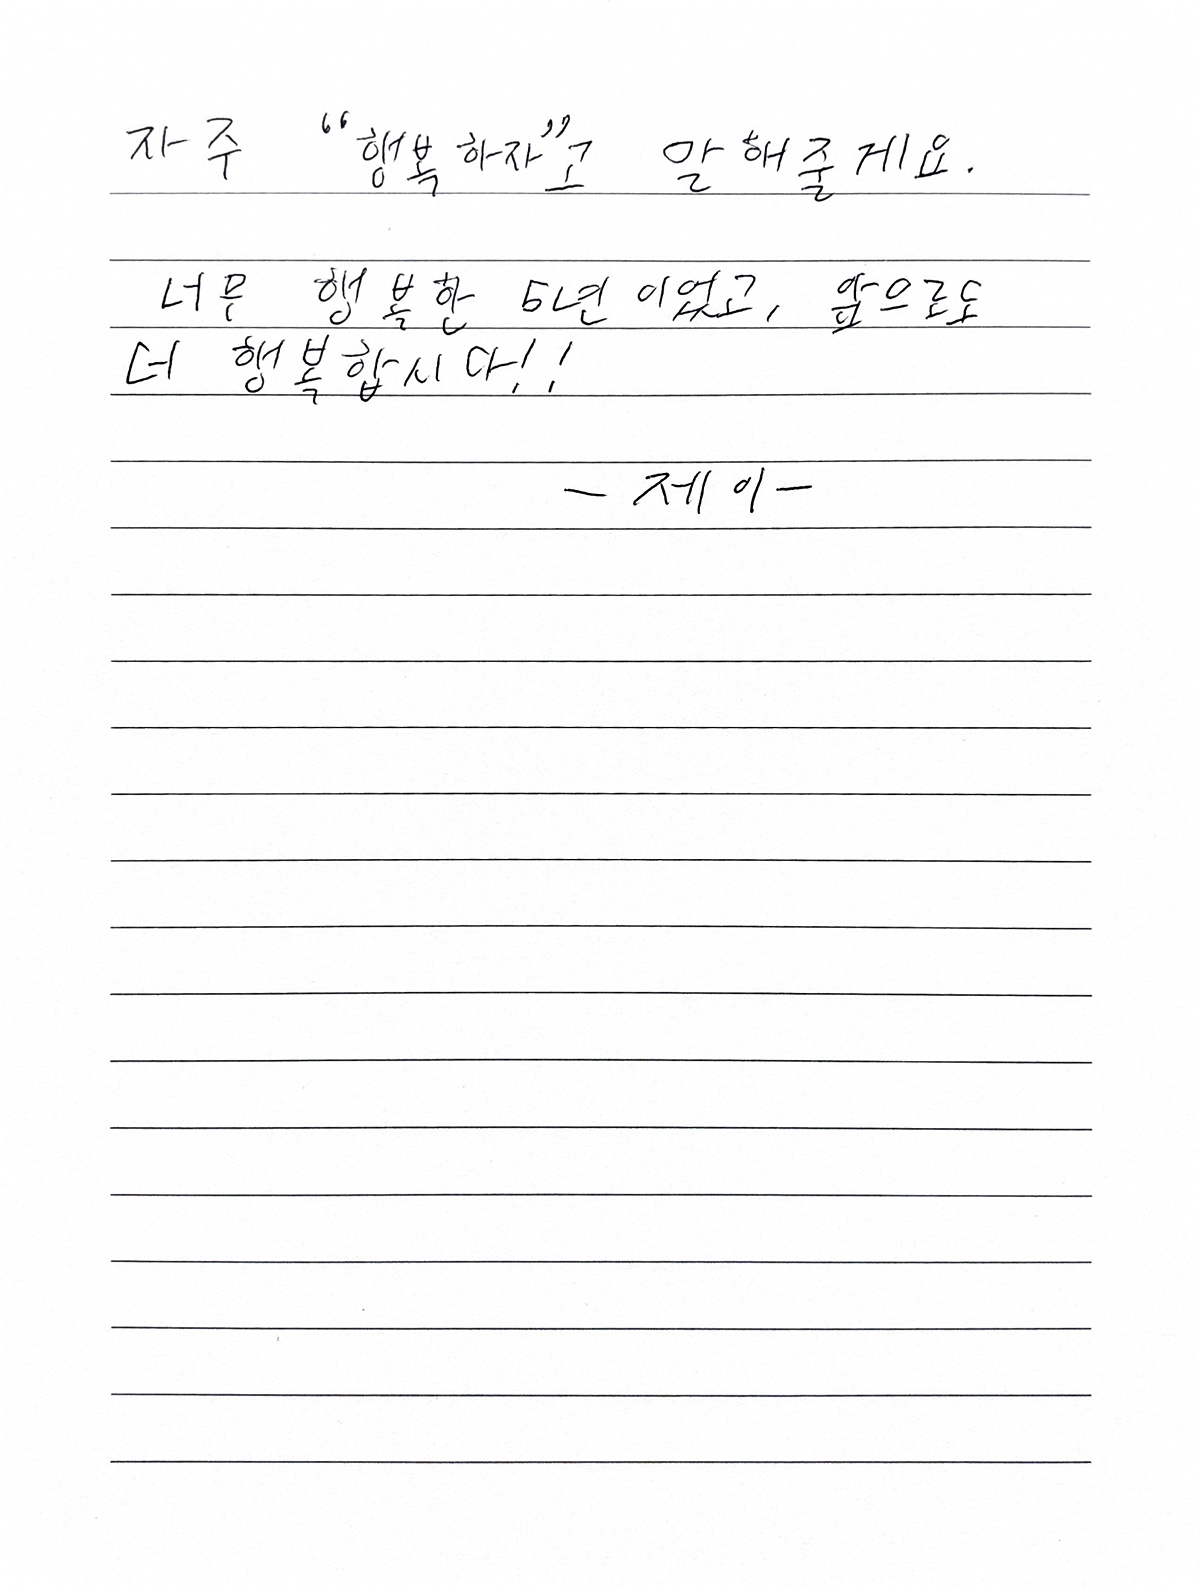 자주 “행복하자”고 말해줄게요.
너무 행복한 5년이었고, 앞으로도
더 행복합시다!!
- 제이 -